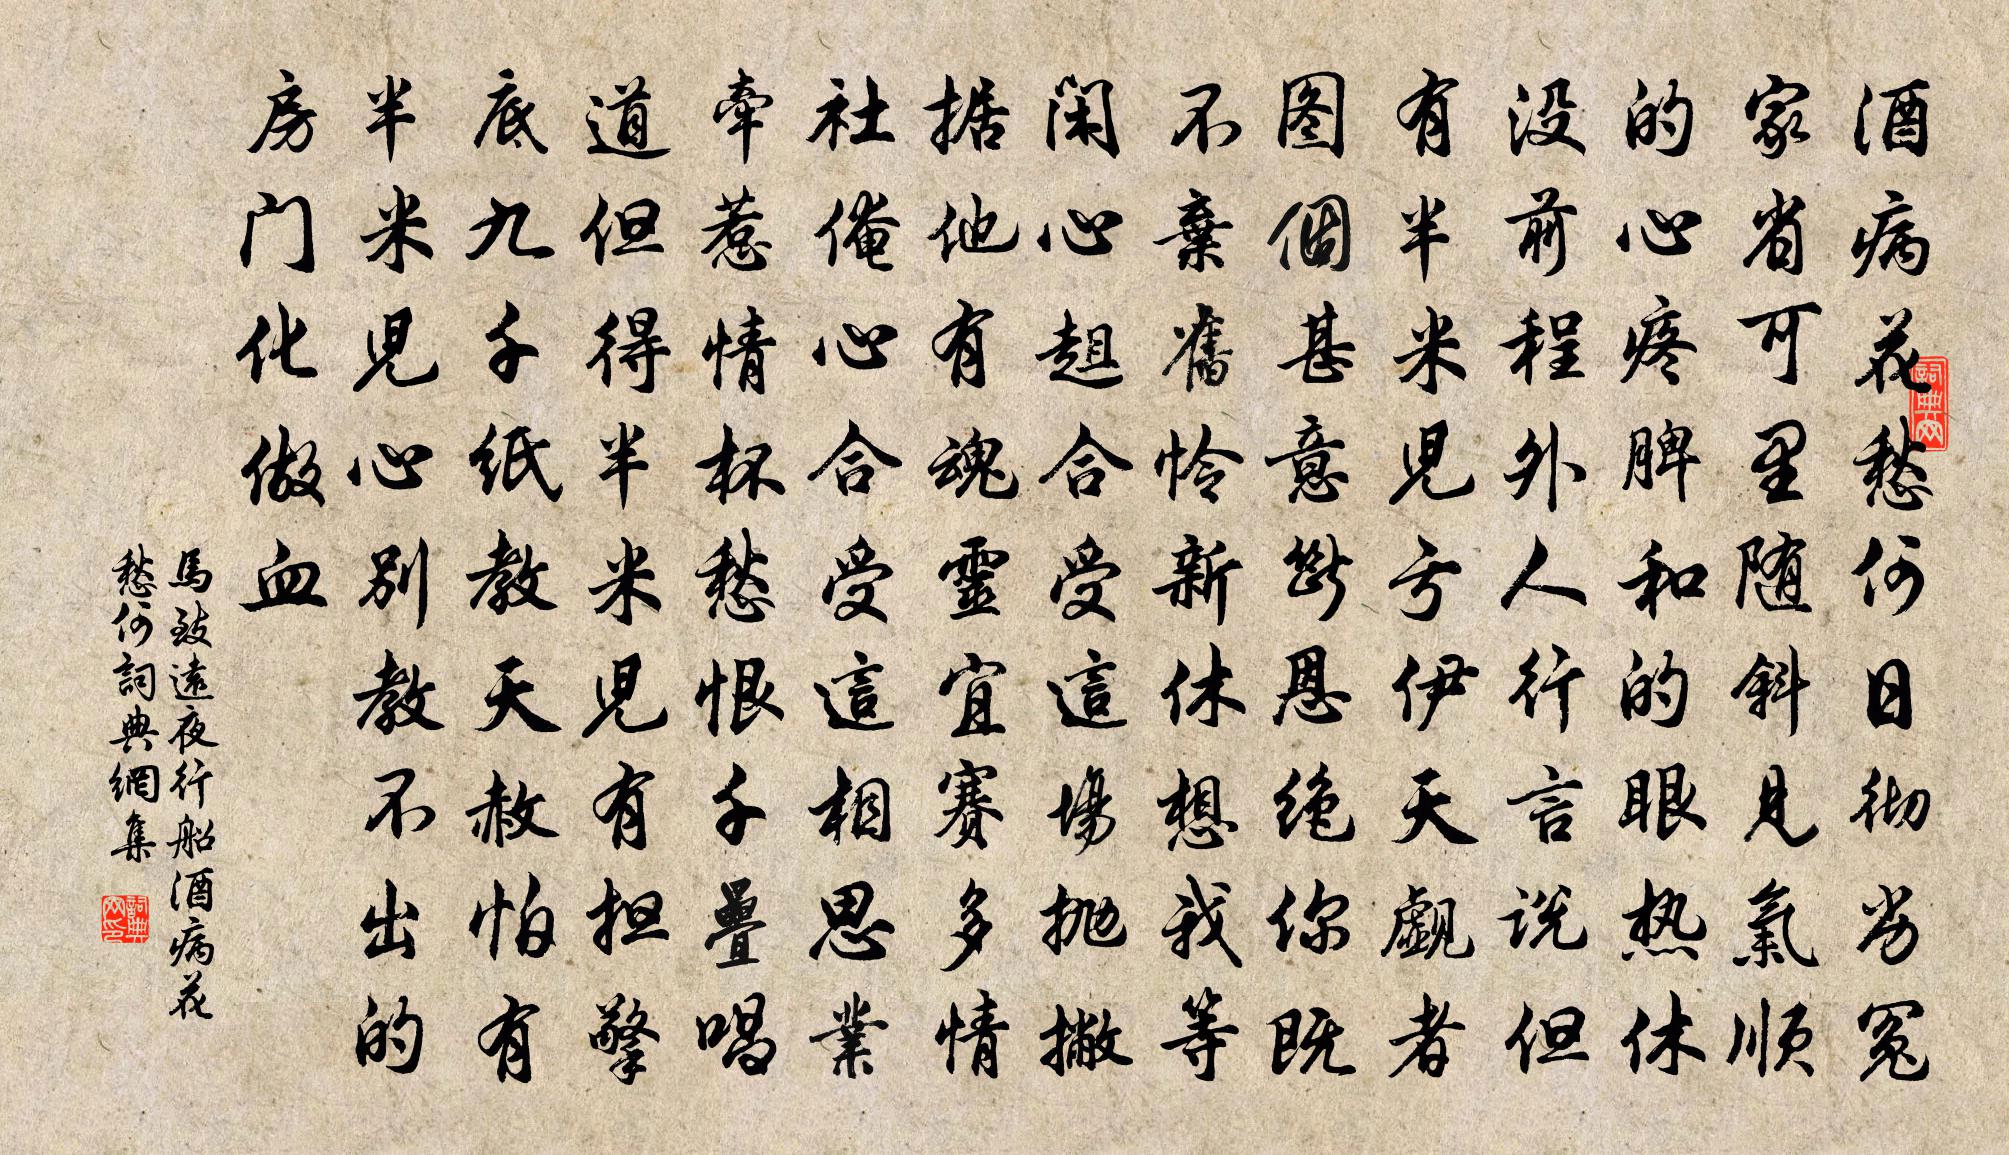 酒病花愁何日彻劣冤
家省可里随斜见氣顺
的心疼脾和的眼热休
没前程外人行言说但
有半米児亏伊天觑者
图個甚意断恩绝你既
不棄舊怜新休想我等
闲心趄合受這場抛撇
据他有魂靈宜赛多情
社俺心合受這相思業
牵惹情杯愁恨千疊唱
道但得半米児有担擎
底九千纸教天赦怕有
半米児心别教不出的
房门化做血
馬致遠夜行船酒病花
愁何詞典網集
詞典网
詞典网印